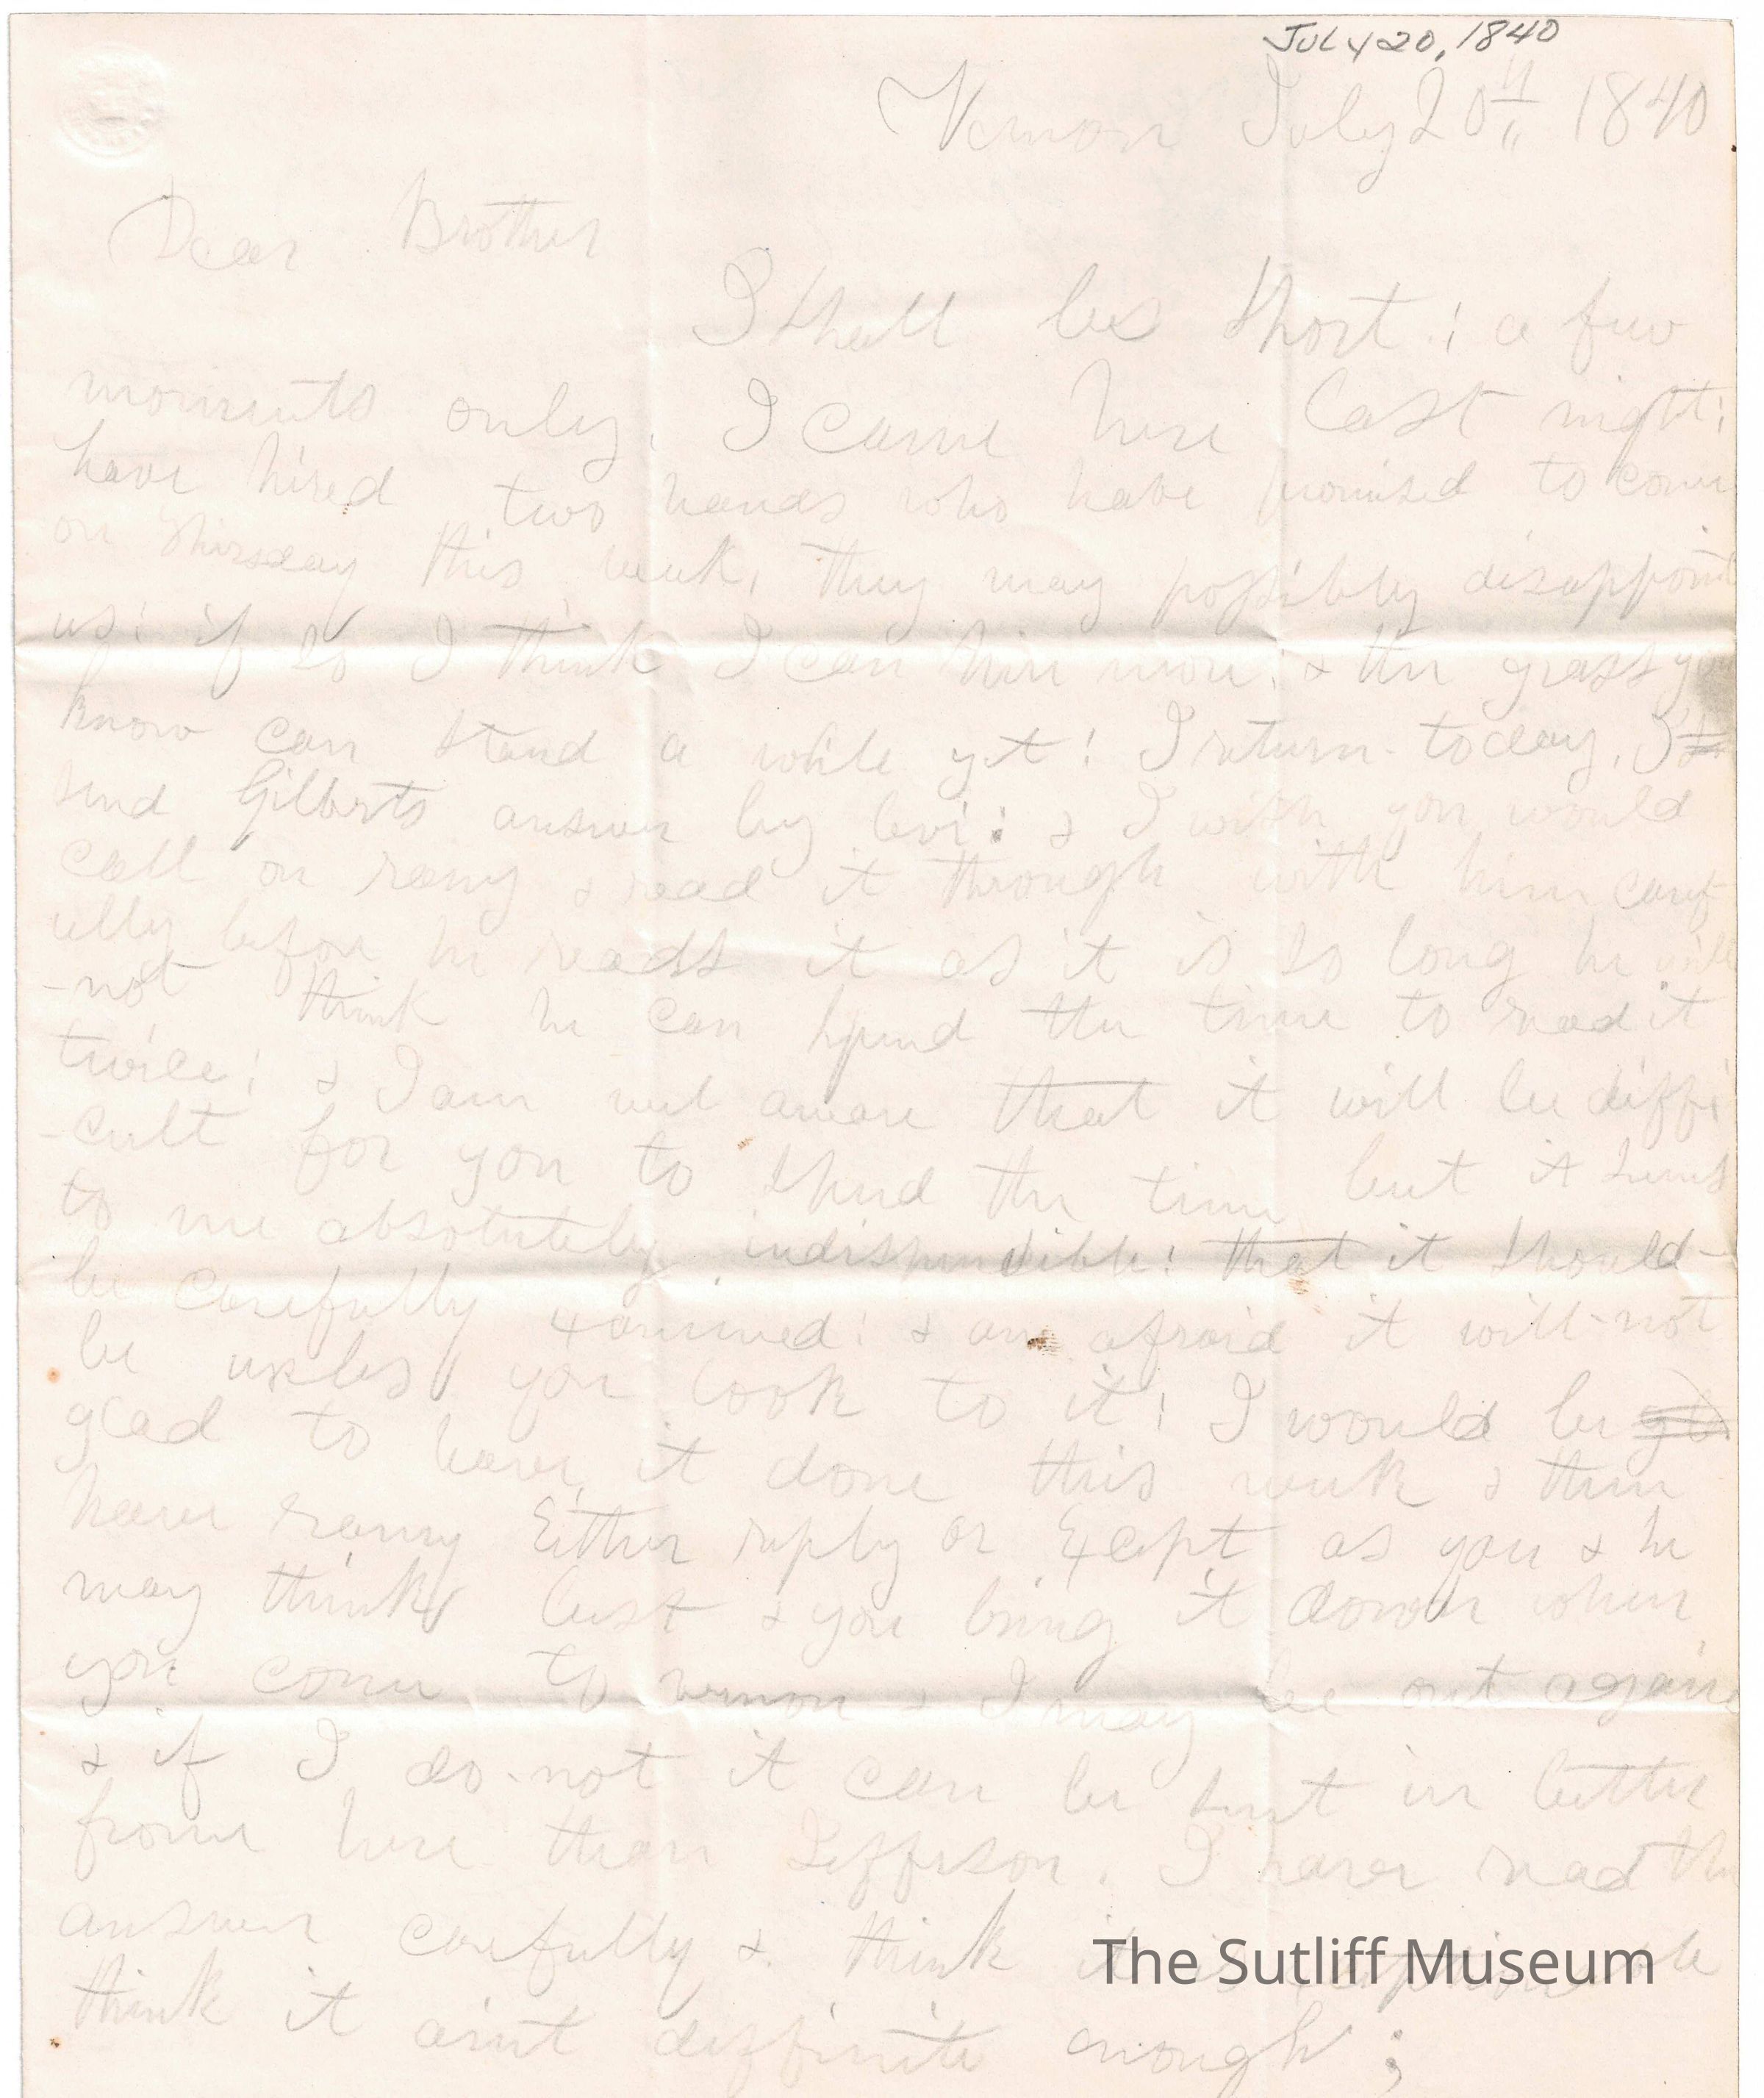 JULY 20, 1840
Vernon July 20th 1840
Dear Brother
I shall be short: a few
moments only. I came here last night:
have hired two hands who have promised to come
on Thirsday this week, they may possibly disappoint
us: if so I think I can hire more: & the grass you
know can stand a while yet: I return today. I
send Gilberts answer by levi: & I wish you would
call on ranny & read it through with him caref
ully before he reads it as it is so long he will
-not think he can spend the time to read it
twice: & I am well aware that it will be diffi
-cult for you to spend the time but it seems
to me absolutely indispensible: that it should-
be carefully examined: & am afraid it will-not
be unless you look to it: I would be
glad to have it done this week & then
have ranny Either reply or Except as you & he
may think best & you bring it down when
you come to vernon & I may be out again
& if I do-not it can be sent in better
from here than Jefferson. I have read the
answer carefully & think it is
think it aint deffinite enough;
The Sutliff Museum